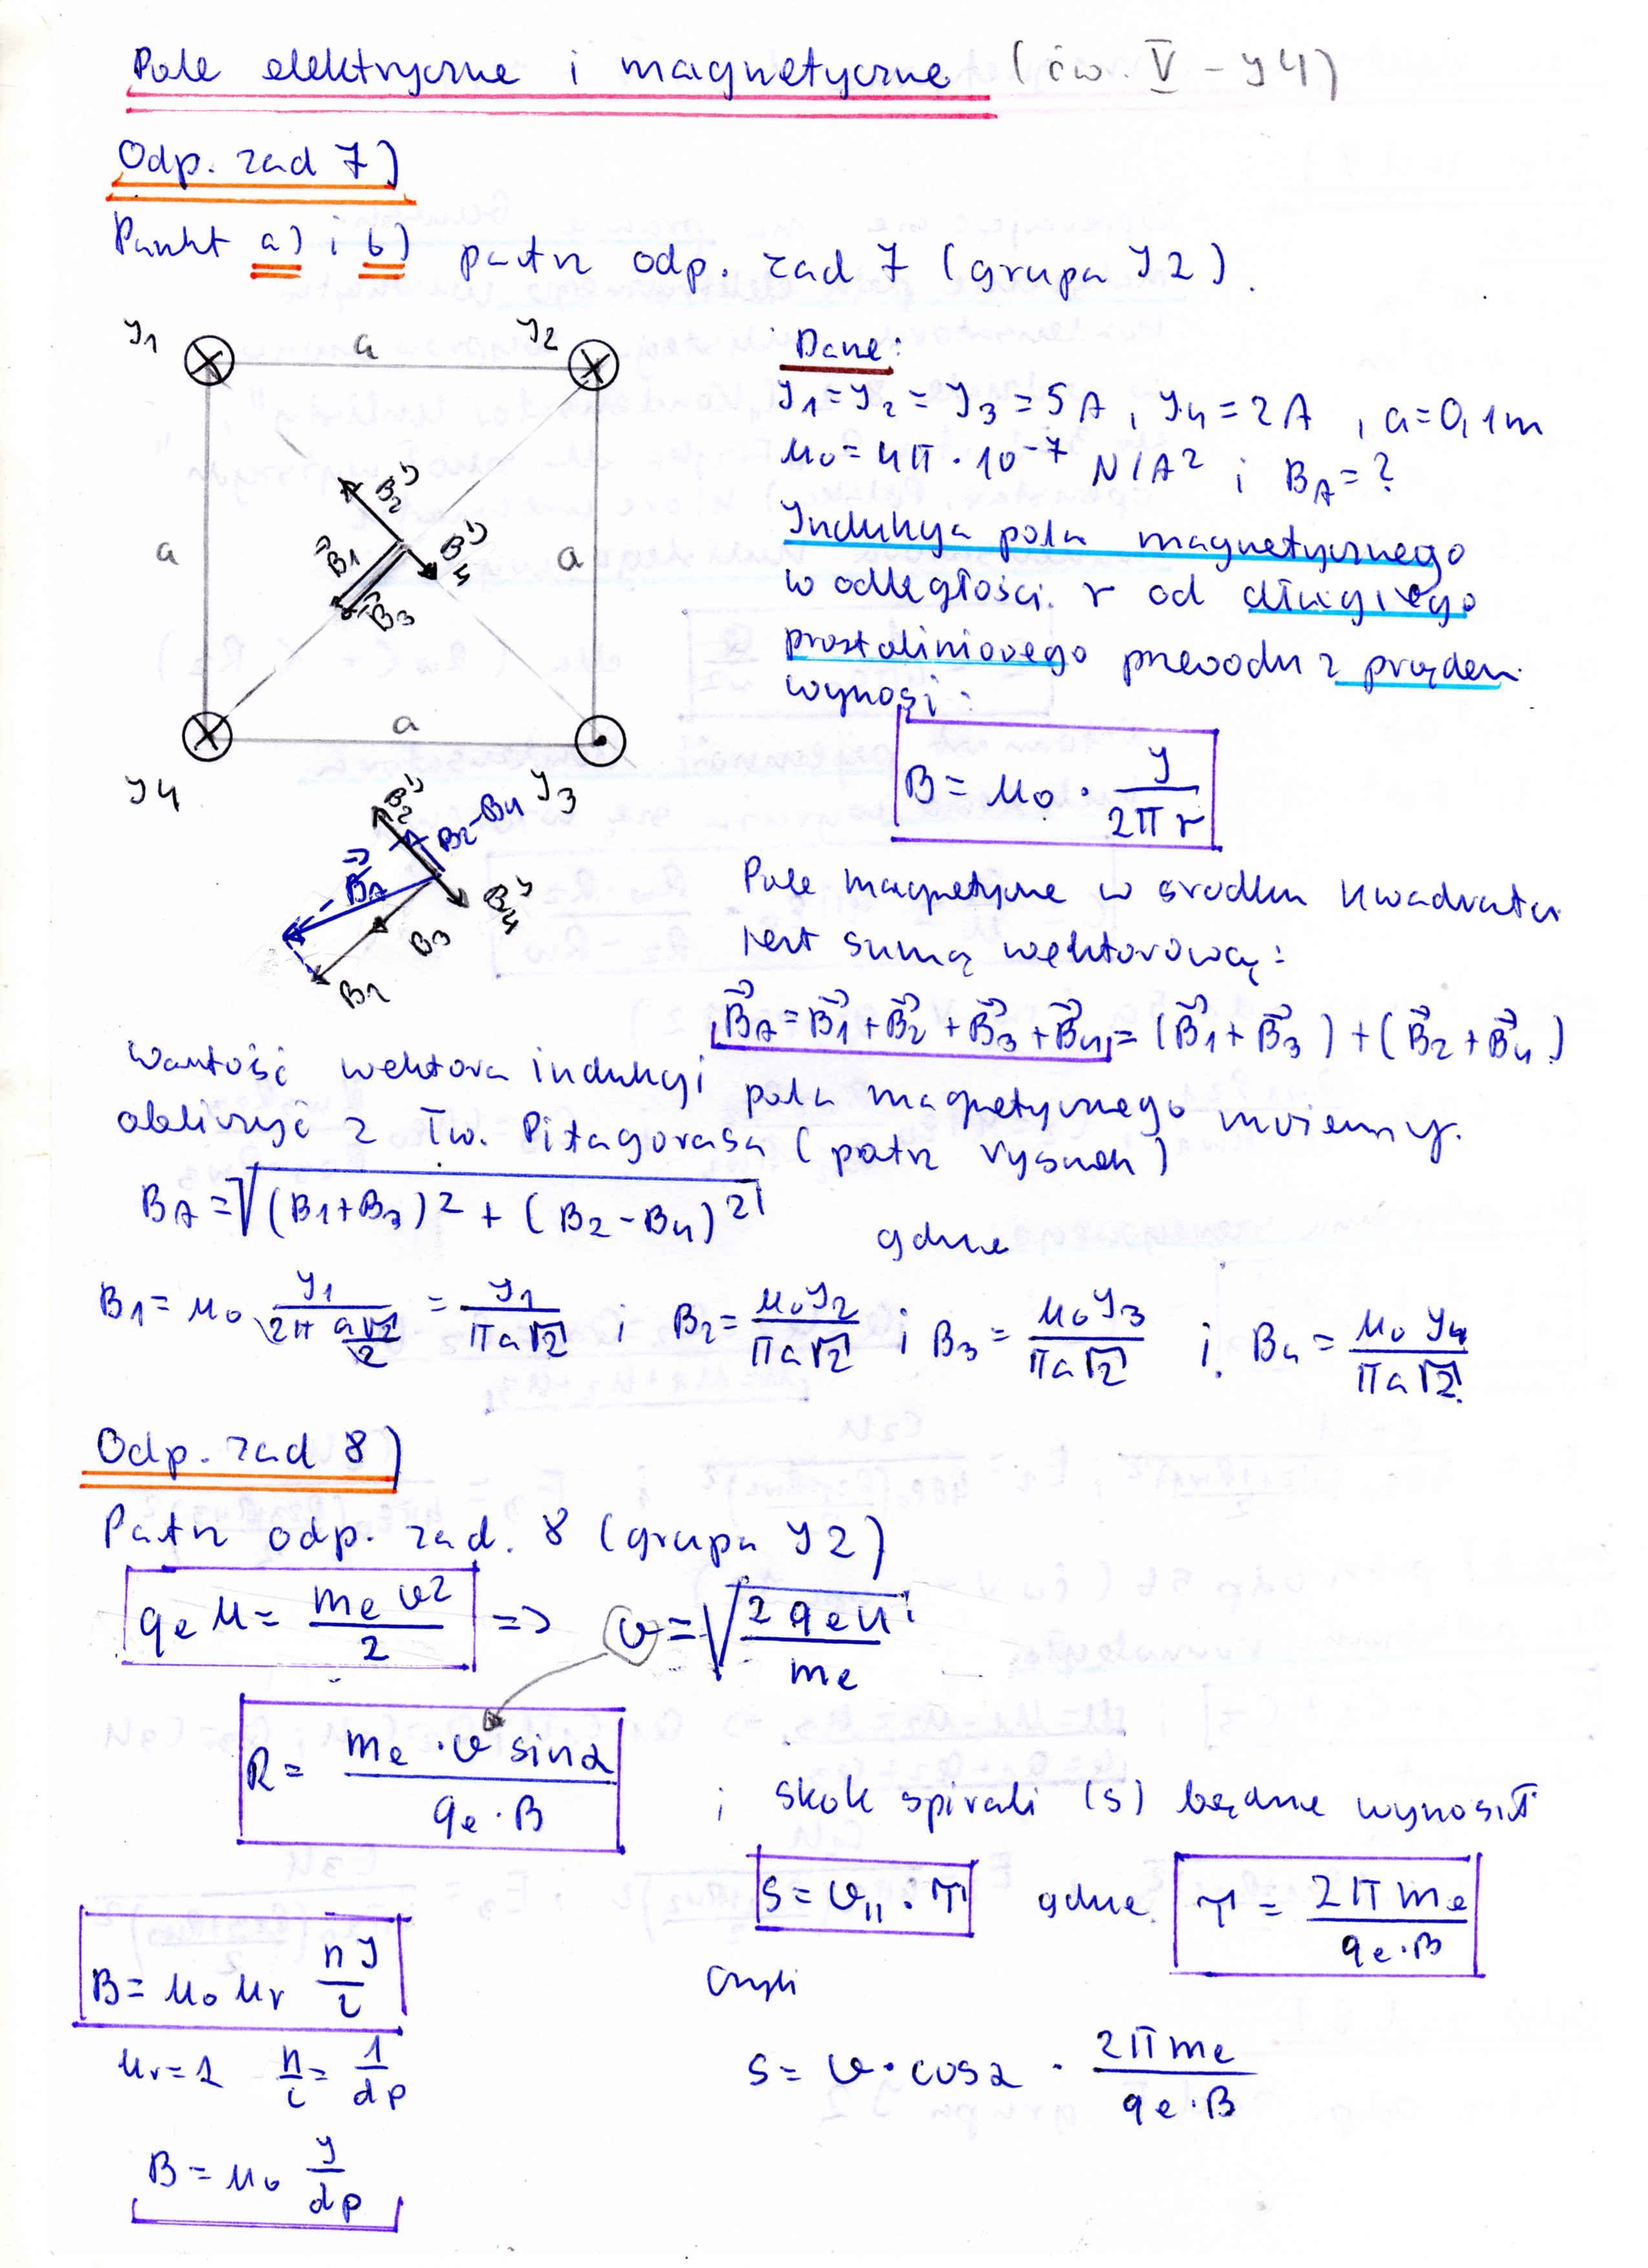 Pole elektryczne i magnetyczne (ćw. V - J4)
Odp. zad 7)
Punkt a) i b) patrz odp. zad 7 (grupa J2).
J1 a J2
a a
B⃗2 B⃗4 B⃗1 B⃗3
a
J4 J3
Dane:
J1 = J2 = J3 = 5A, J4 = 2A, a = 0,1m
μ0 = 4π · 10⁻⁷ N/A² i BA = ?
Indukcja pola magnetycznego
w odległości r od długiego
prostoliniowego przewodu z prądem
wynosi:
B = μ0 · J / 2πr
B⃗2 B2-B4
B⃗A B⃗4
B3
B1
Pole magnetyczne w środku kwadratu
jest sumą wektorową:
B⃗A = B⃗1 + B⃗2 + B⃗3 + B⃗4 = (B⃗1 + B⃗3) + (B⃗2 + B⃗4)
Wartość wektora indukcji pola magnetycznego możemy
obliczyć z Tw. Pitagorasa (patrz rysunek)
BA = √((B1+B3)² + (B2-B4)²) gdzie
B1 = μ0 J1 / (2π a√2/2) = J1 / πa√2 i B2 = μ0J2 / πa√2 i B3 = μ0J3 / πa√2 i B4 = μ0J4 / πa√2
Odp. zad 8)
Patrz odp. zad. 8 (grupa J2)
qe U = me v² / 2 => v = √(2 qe U / me)
R = me · v sinα / qe · B i skok spirali (s) będzie wynosił
s = v|| · T gdzie T = 2π me / qe · B
B = μ0 μr nJ / l
czyli
μr = 1 n/l = 1/dp
s = v · cosα · 2π me / qe · B
B = μ0 J / dp